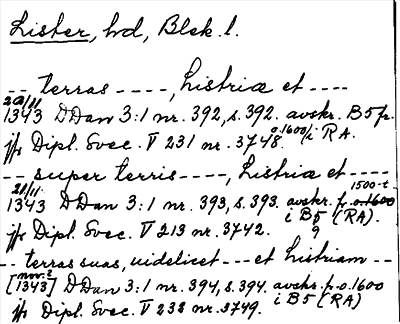 Lister, hd, Blek. l.
-- terras ----, Listriæ et ----
20/11 1343 DDan 3:1 nr. 392, s. 392. avskr. B5 fr. o. 1600 i RA.
jfr Dipl. Svec. V 231 nr. 3748.
-- super terris ----, Listriæ et ----
21/11 1343 DDan 3:1 nr. 393, s. 393. avskr. fr. 1500-t. i B5 (RA).
jfr Dipl. Svec. V 213 nr. 3742. 9
-- terras suas, uidelicet -- et Listriam --
[nov. ? 1343] DDan 3:1 nr. 394, s. 394. avskr. fr. o. 1600 i B5 (RA)
jfr Dipl. Svec. V 232 nr. 3749.